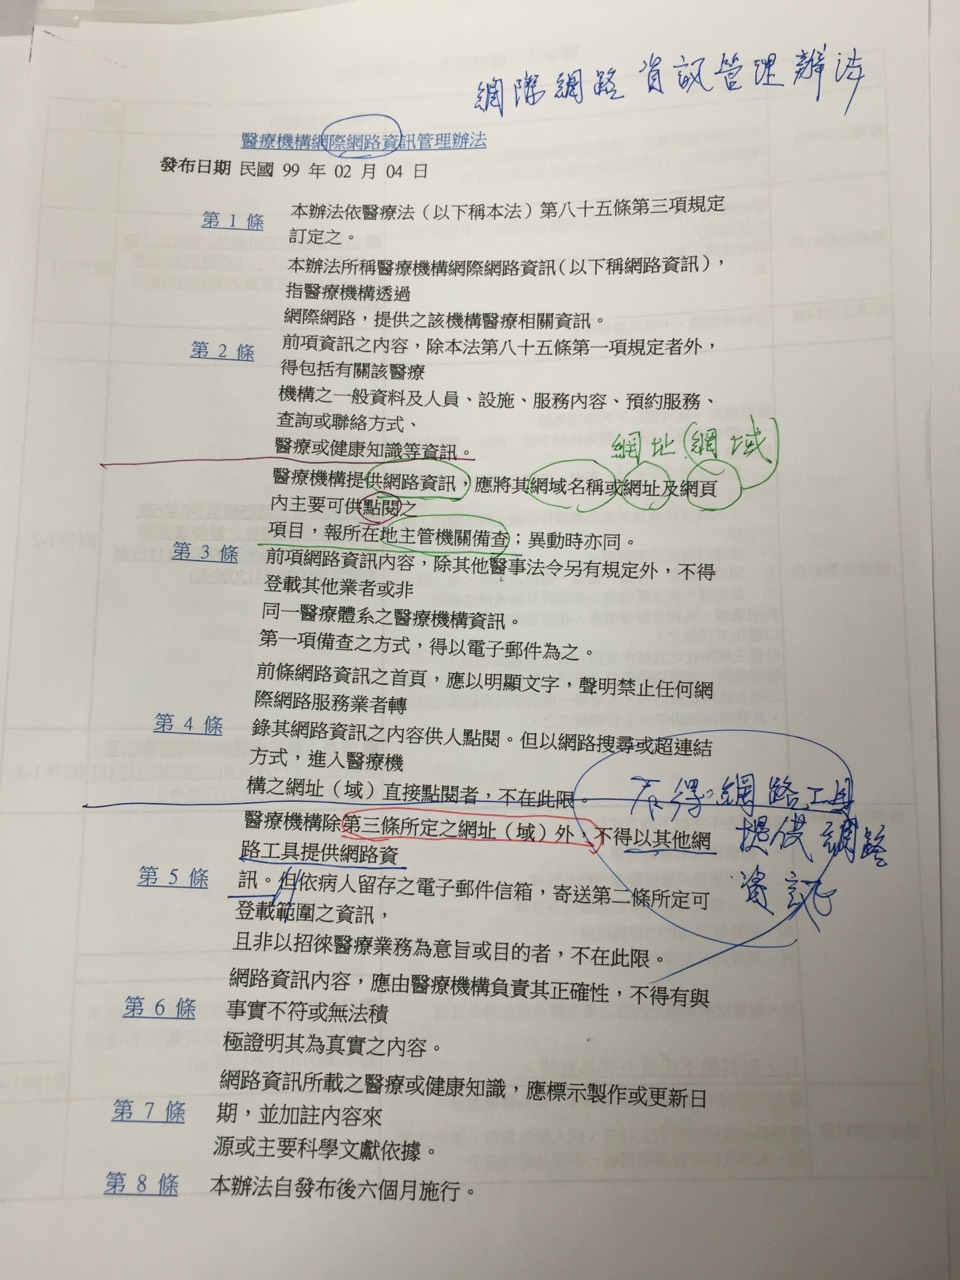 網際網路資訊管理辦法
醫療機構網際網路資訊管理辦法
發布日期 民國 99 年 02 月 04 日
第 1 條
本辦法依醫療法（以下稱本法）第八十五條第三項規定
訂定之。
第 2 條
本辦法所稱醫療機構網際網路資訊（以下稱網路資訊），
指醫療機構透過
網際網路，提供之該機構醫療相關資訊。
前項資訊之內容，除本法第八十五條第一項規定者外，
得包括有關該醫療
機構之一般資料及人員、設施、服務內容、預約服務、
查詢或聯絡方式、
醫療或健康知識等資訊。
網址(網域)
第 3 條
醫療機構提供網路資訊，應將其網域名稱或網址及網頁
內主要可供點閱之
項目，報所在地主管機關備查；異動時亦同。
前項網路資訊內容，除其他醫事法令另有規定外，不得
登載其他業者或非
同一醫療體系之醫療機構資訊。
第一項備查之方式，得以電子郵件為之。
第 4 條
前條網路資訊之首頁，應以明顯文字，聲明禁止任何網
際網路服務業者轉
錄其網路資訊之內容供人點閱。但以網路搜尋或超連結
方式，進入醫療機
構之網址（域）直接點閱者，不在此限。
第 5 條
醫療機構除第三條所定之網址（域）外，不得以其他網
路工具提供網路資
訊。但依病人留存之電子郵件信箱，寄送第二條所定可
登載範圍之資訊，
且非以招徠醫療業務為意旨或目的者，不在此限。
不得網路工具
提供網路
資訊
第 6 條
網路資訊內容，應由醫療機構負責其正確性，不得有與
事實不符或無法積
極證明其為真實之內容。
第 7 條
網路資訊所載之醫療或健康知識，應標示製作或更新日
期，並加註內容來
源或主要科學文獻依據。
第 8 條
本辦法自發布後六個月施行。